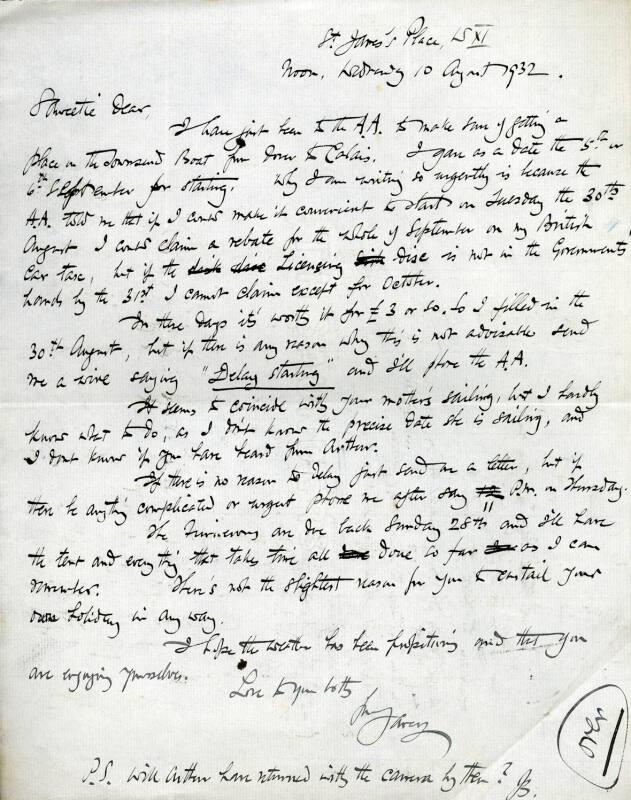 St James's Place, W XI
Noon, Wednesday 10 August 1932.
Sweetie Dear,
I have just been to the A.A. to make sure of getting a
place on the Townsend Boat from Dover to Calais. I gave as a date the 5th or
6th September for starting. Why I am writing so urgently is because the
A.A. told me that if I could make it convenient to start on Tuesday the 30th
August I could claim a rebate for the whole of September on my British
Car tax, but if the disk disc Licencing Disc is not in the Governments
hands by the 31st I cannot claim except for October.
In these days it's worth it for £3 or so. So I filled in the
30th August, but if there is any reason why this is not advisable send
me a wire saying "Delay starting" and I'll phone the A.A.
It seems to coincide with your mother's sailing, but I hardly
know what to do, as I don't know the precise date she is sailing, and
I dont know if you have heard from Arthur.
If there is no reason to delay just send me a letter, but if
there be anything complicated or urgent phone me after say 11 P.M. on Thursday.
The are due back Sunday 28th and I'll have
the tent and everything that takes time all done so far as I can
remember. There's not the slightest reason for you to curtail your
own holiday in any way.
I hope the weather has been propitious and that you
are enjoying yourselves.
Love to you both
over
P.S. Will Arthur have returned with the camera by then?